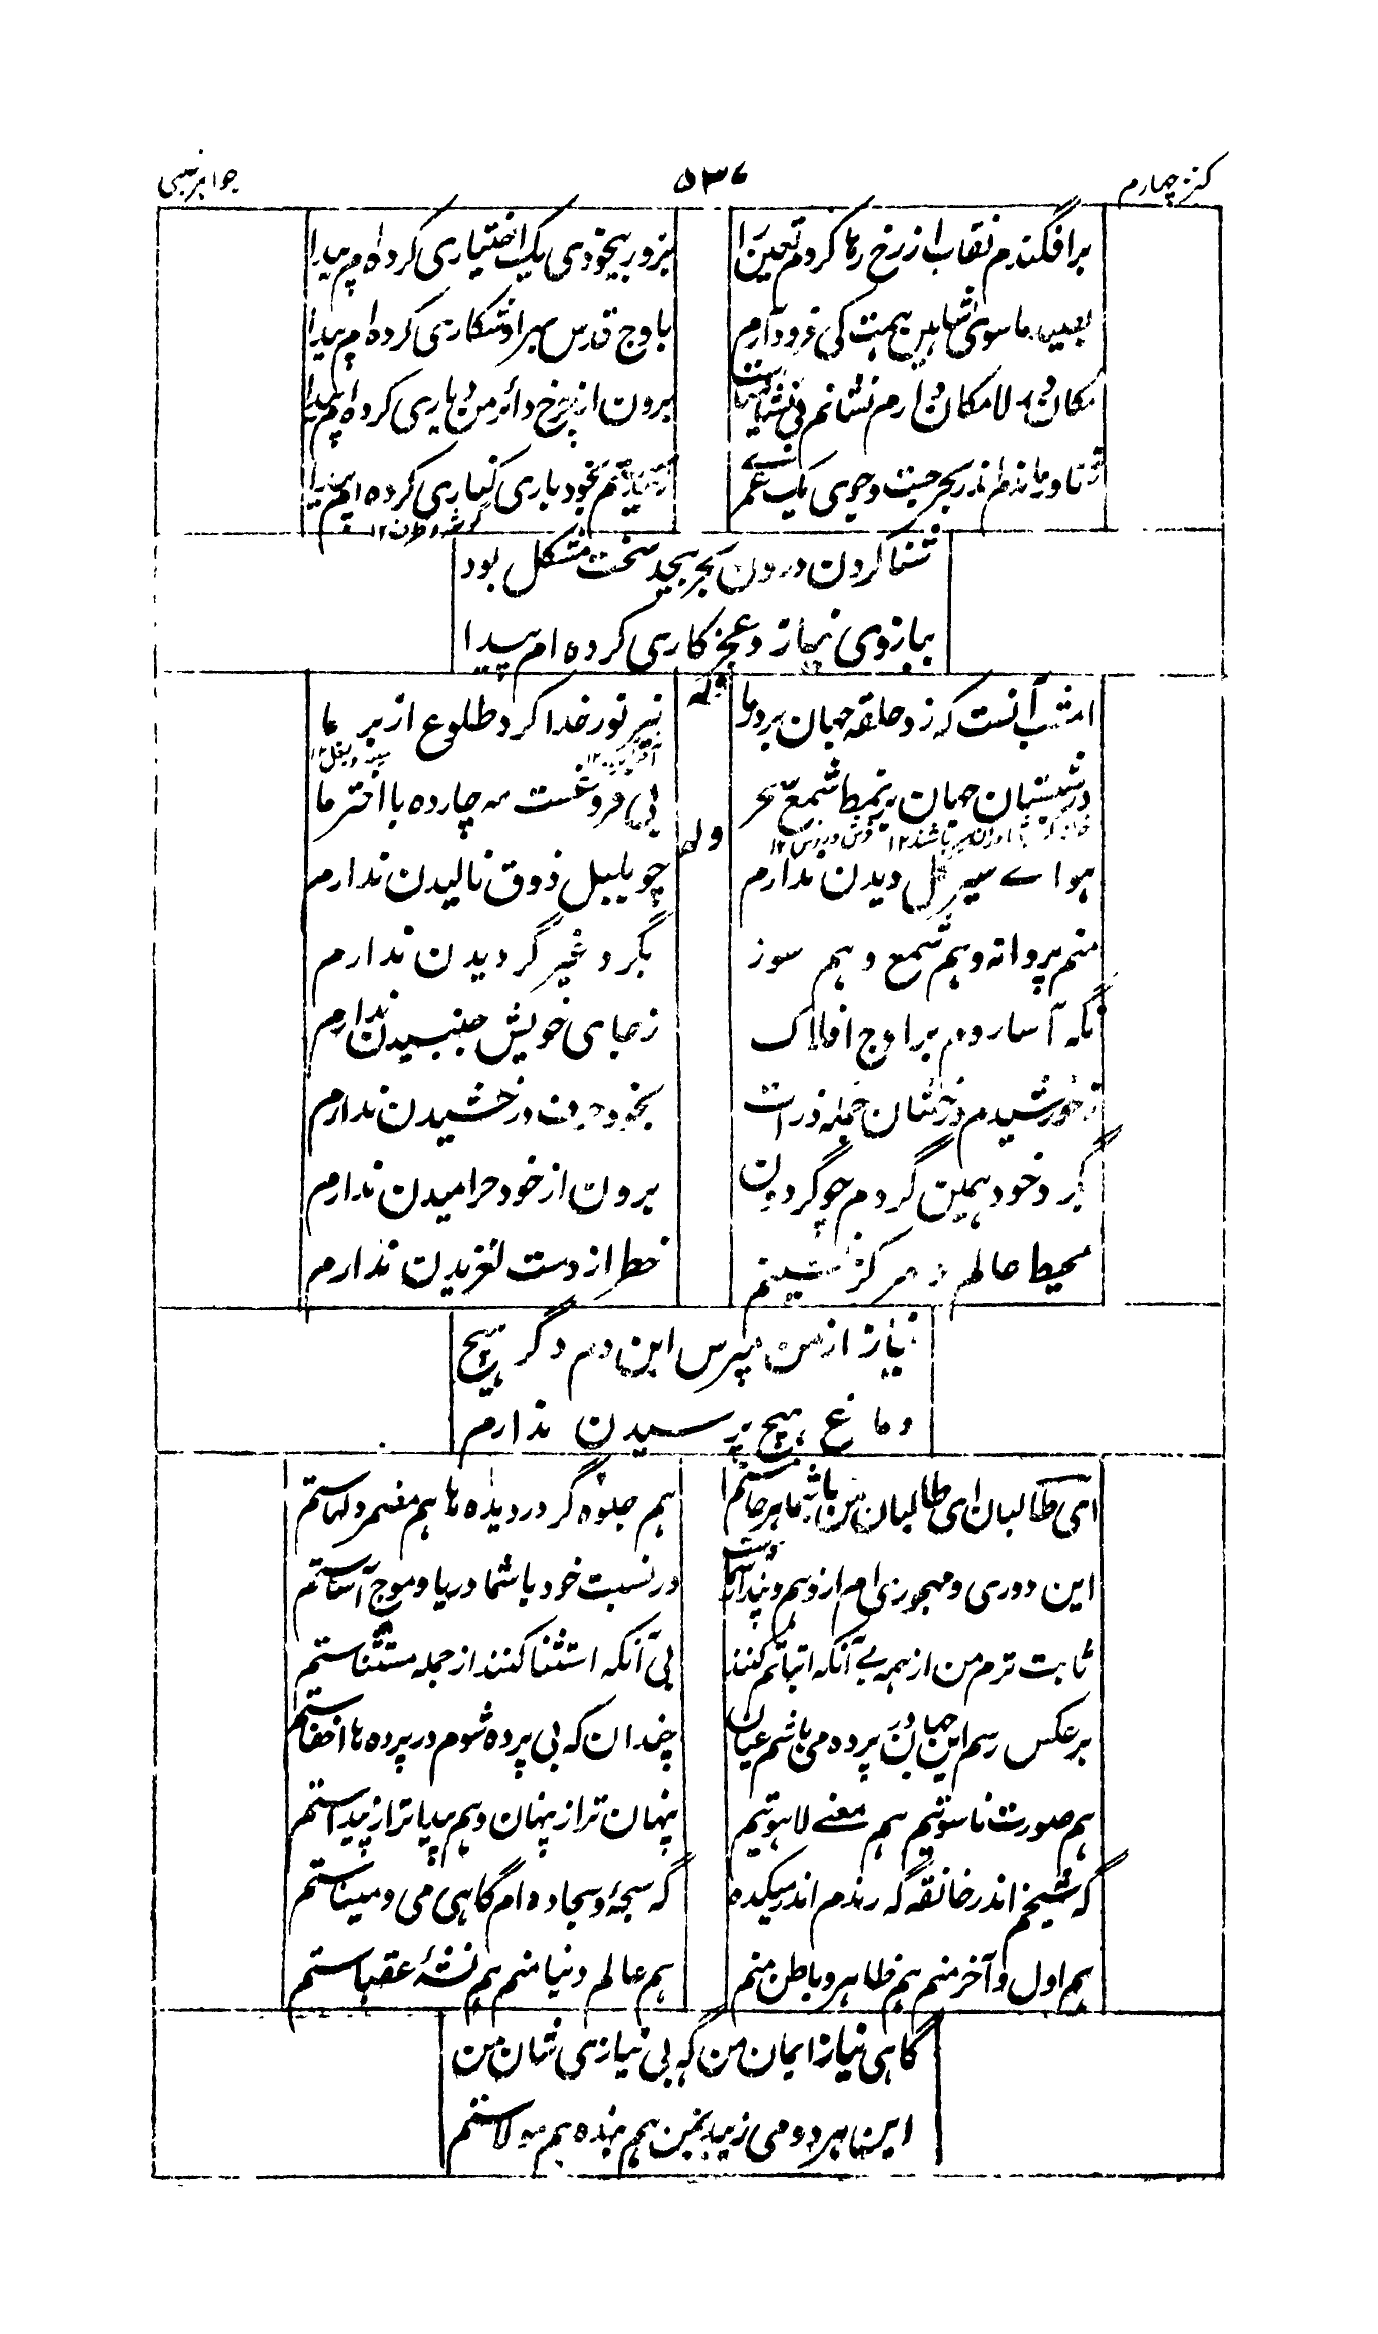 کنز چهارم
۵۳۶
جواهر غیبی
برافگندم نقاب از رخ رها کردم تعین را
بزور بیخودی یک اختیاری کرده ام پیدا
بصید ماسوی شاهین همت کی فرود آرم
باوج قدس سر او شکاری کرده ام پیدا
مکان در لامکان دارم نشانم بی نشانیست
برون از چرخ دائر من دیاری کرده ام پیدا
اندر بحر جست وجوی یک عمر
بخود باری کناری کرده ام پیدا
شنا کردن درون بحر بیحد سخت مشکل بود
ببازوی نیاز و عجز کاری کرده ام پیدا
وله
امشب آنست که زد حلقه جهان بر در ما
نیر نور خدا کرد طلوع از بر ما
در شبستان جهان شمع سحر
بی فروغست مه چارده با اختر ما
وله
هوای سیر گل دیدن ندارم
چو بلبل ذوق نالیدن ندارم
منم پروانه و هم شمع و هم سوز
بگرد غیر گردیدن ندارم
نگه آسا روم بر اوج افلاک
ز جای خویش جنبیدن ندارم
ز خورشیدم درخشان جمله ذرات
بخود جز من درخشیدن ندارم
بگرد خود همین گردم چو گردون
برون از خود خرامیدن ندارم
محیط عالم و مرکز نشینم
خطر از دست لغزیدن ندارم
نیاز از من مپرس این دم دگر هیچ
دماغ هیچ پرسیدن ندارم
ای طالبان ای طالبان من با شما هر جاستم
هم جلوه گر در دیده ها هم مضمر دلهاستم
این دوری و مهجوری ام از وهم و پندار شماست
در نسبت خود با شما دریا و موج آساستم
ثابت ترم من از همه بے آنکه اثباتم کنند
بی آنکه استثنا کنند از جمله مستثناستم
بر عکس رسم این جهان در پرده می باشم عیان
چندان که بی پرده شوم در پرده ها اخفاستم
هم صورت ناسوتیم هم معنے لاهوتیم
پنهان تر از پنهان و هم پیدا تر از پیداستم
گه شیخم اندر خانقه گه رندم اندر میکده
گه سبحه و سجاده ام گاهی می و میناستم
هم اول و آخر منم هم ظاهر و باطن منم
هم عالم دنیا منم هم نشۀ عقباستم
گاهی نیاز ایمان من گه بی نیازی شان من
اینها هر دو می زیبد بمن هم بنده هم مولاستم